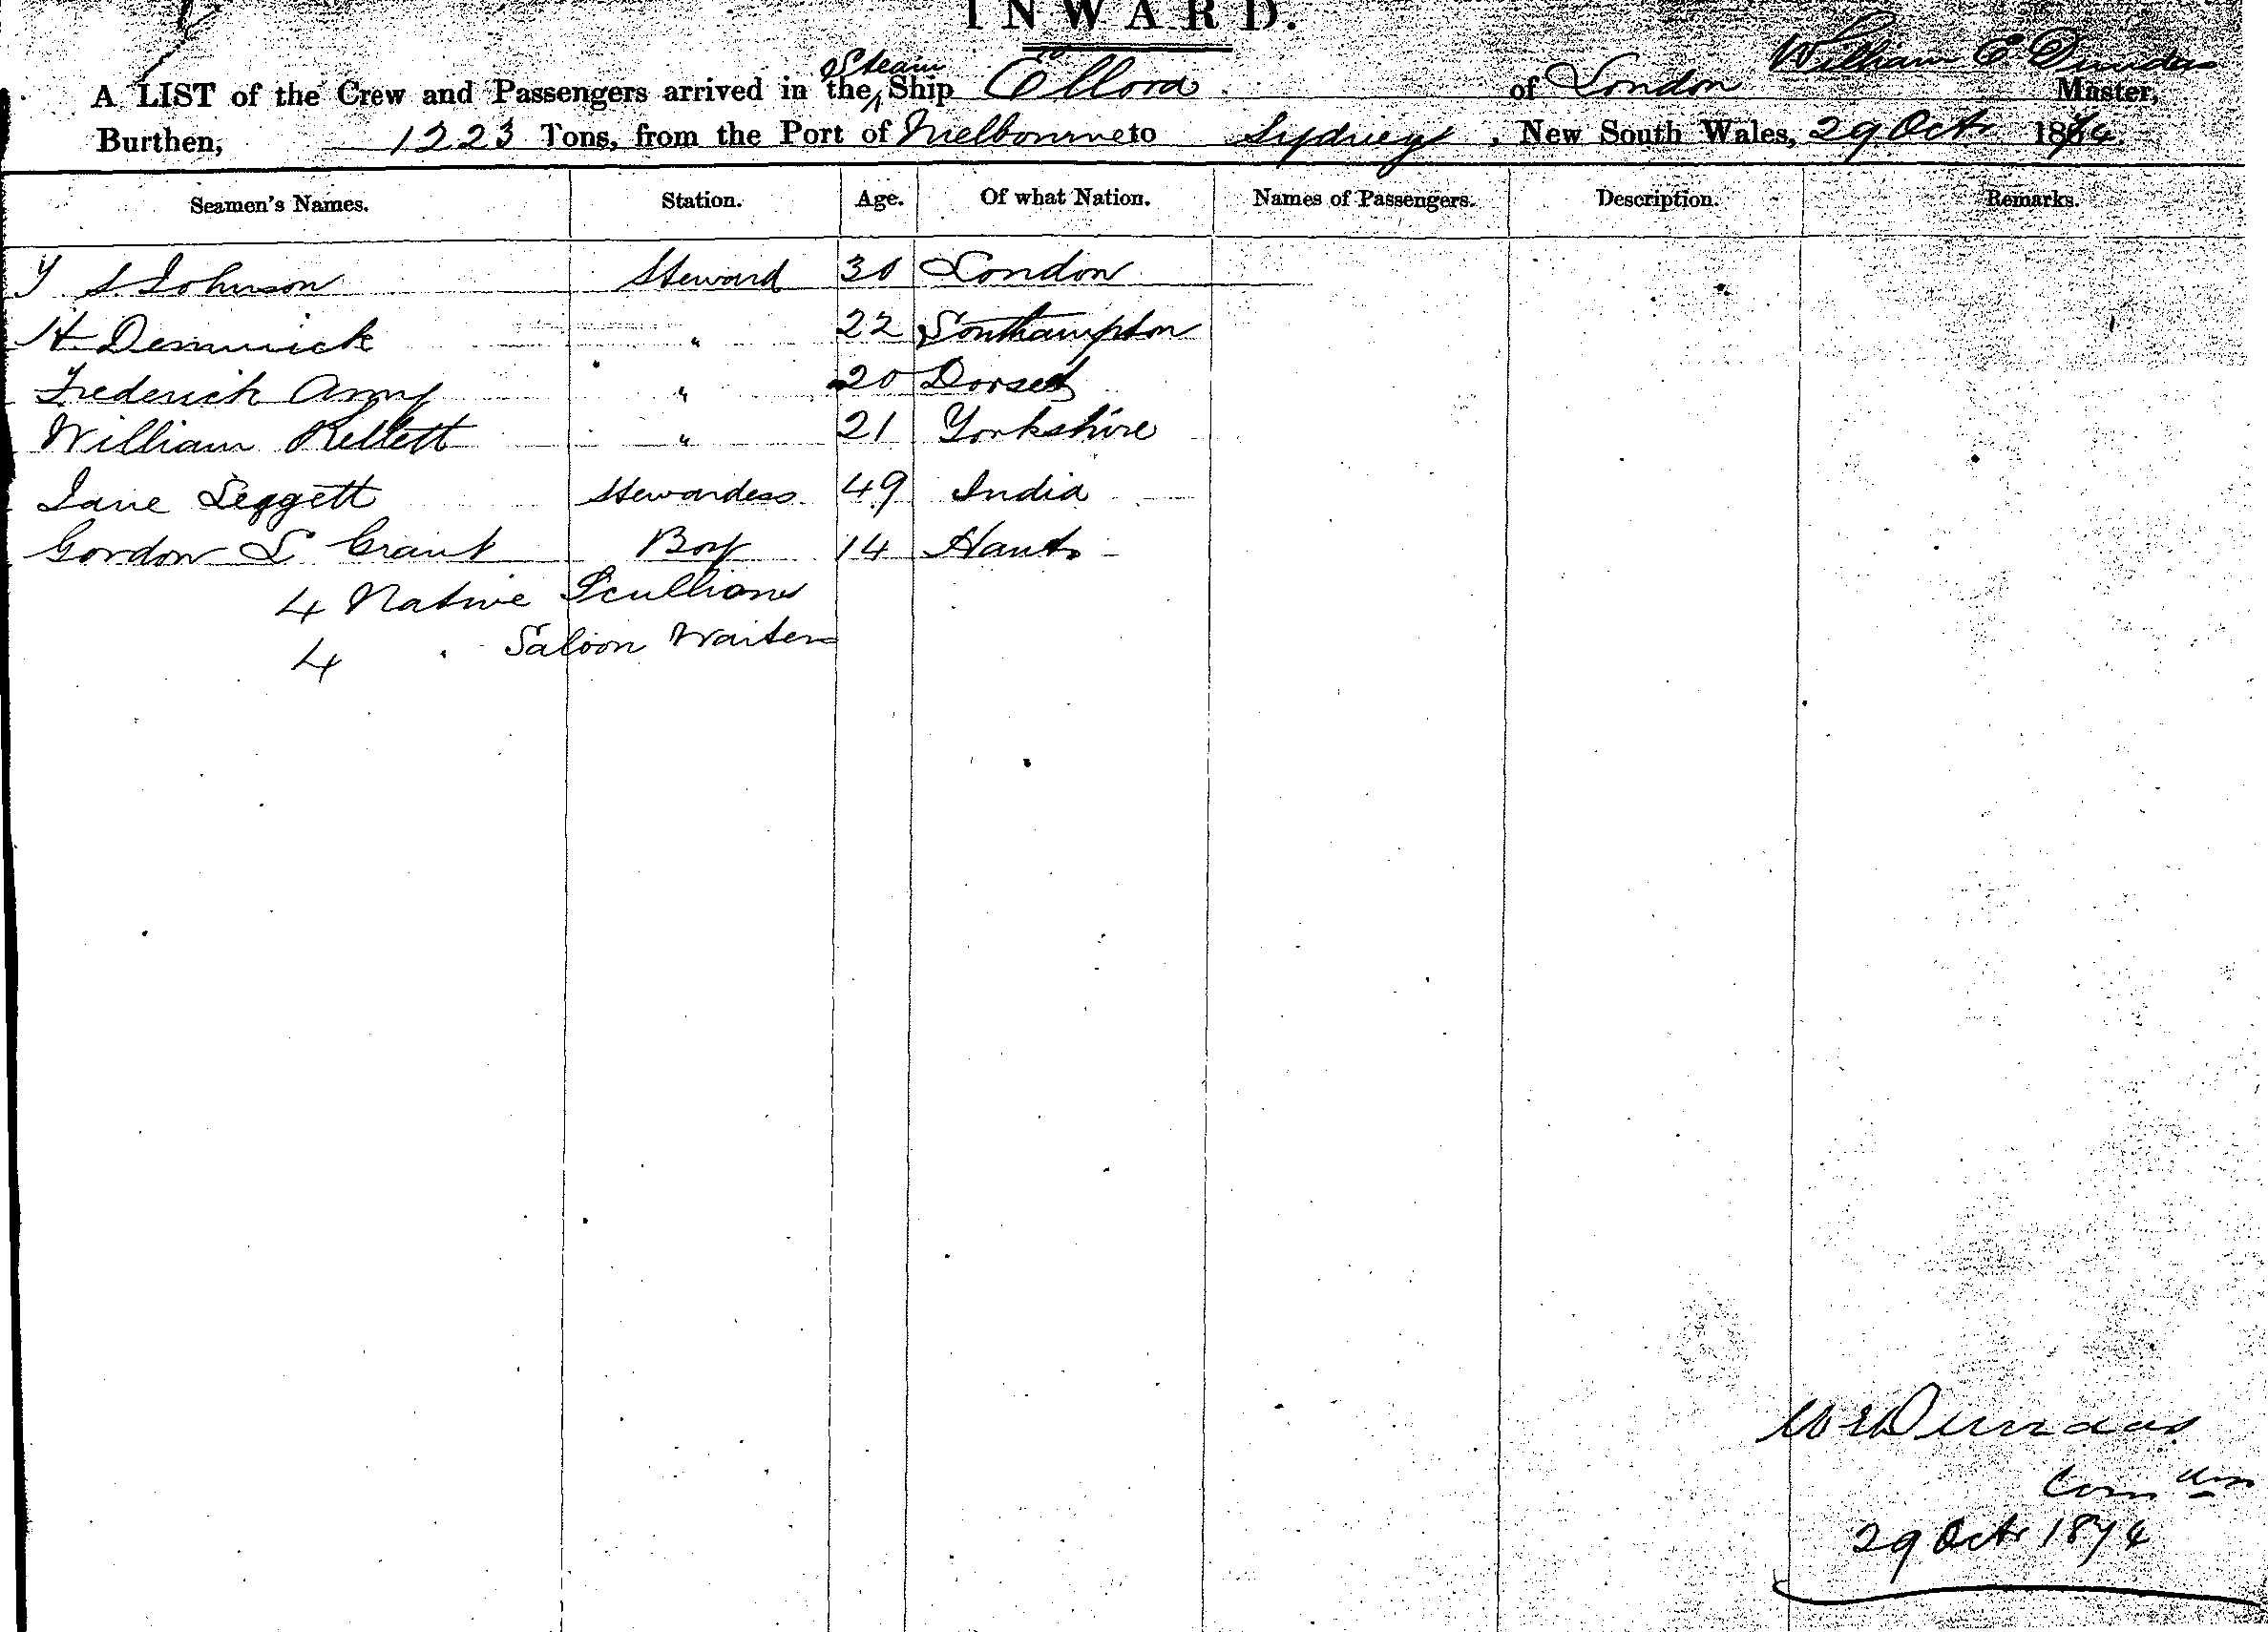 INWARD.
A LIST of the Crew and Passengers arrived in the Steam Ship Ellora of London William E Dundas Master,
Burthen, 1223 Tons, from the Port of Melbourne to Sydney, New South Wales, 29 Oct 1874.
Seamen's Names. Station. Age. Of what Nation. Names of Passengers. Description. Remarks.
S Johnson Steward 30 London
H Demmick " 22 Southampton
Frederick " 20 Dorset
William Kellett " 21 Yorkshire
Jane Leggett Stewardess 49 India
Gordon L Grant Boy 14 Hants
4 Native Scullions
4 " Saloon Waiters
W E Dundas
29 Oct 1874